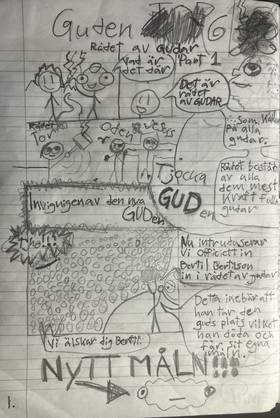 Guden
6
Rådet av gudar
Part 1
Vad är
det där
Det är
rådet
av GUDAR
...Som
på alla
gudar.
Rådet
Tor
Oden
Tjocka
GUD
en
Rådet består
av alla
dem mest
kraftfulla
gudar
Invigningen av den nya
GUDen
Nu introduserar
vi officiellt in
Bertil Bertilsson
in i rådet av gudar
Detta inebär att
han tar den
guds plats vilket
han döda och
får sit egna
måln.
Vi älskar dig Bertil.
NYTT MÅLN!!!
1.